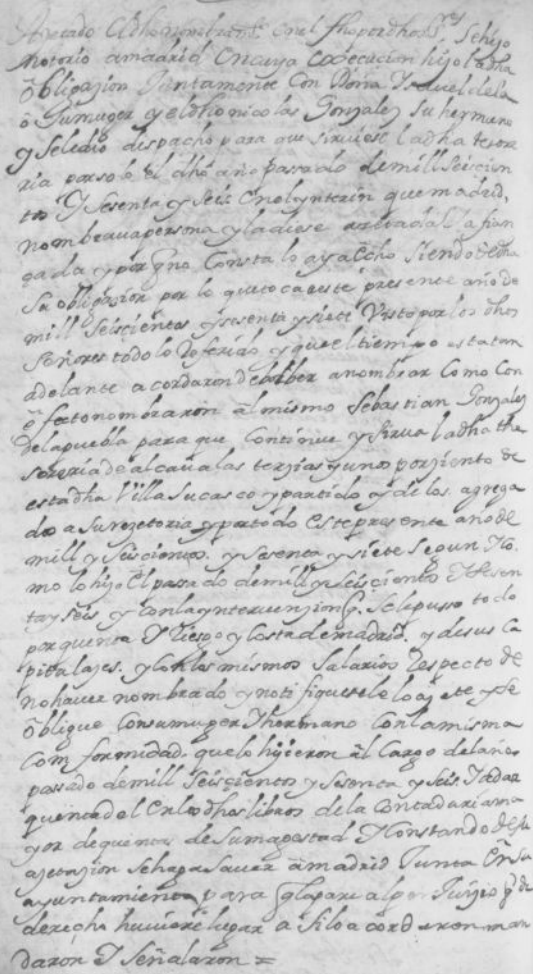 dho nombram.to en el fho por dhos s.res se hiço
notorio a madrid en cuya execucion hiço la dha
obligazion Juntamente con Doña Ysavel de la
o su muger y el dho nicolas Gonzalez su hermano
y se le dio despacho para que sirviese la dha tesore
ria por solo el dho año passado de mill seiscien
tos y sesenta y seis en el ynterin que madrid,
nombraua persona y la diese a la fian
ça da y por q no consta lo aya echo siendo de dha
su obligasion por lo que toca a este presente año de
mill seiscientos y sesenta y siete Visto por los dhos
Señores todo lo referido y que el tiempo esta tan
adelante acordaron de a nombrar como con
efecto nombraron al mismo Sebastian Gonzalez
de la puebla para que continue y sirua la dha the
soreria de alcaualas terzias y unos por ziento de
esta dha Villa su casco y partido y de los agrega
dos a su rezetoria y por todo este presente año de
mill y seiscientos y sesenta y siete segun Ko
mo lo hiço el passado de mill y seiscientos y sesen
ta y seis y con la yntervenzion q. se le pusso todo
por quenta y Riesgo y costa de madrid. y de sus ca
pitulares. y con los mismos salarios Respecto de
no haver nombrado y notifiquesele lo azete y se
obligue con su muger y hermano con la misma
comformidad. que lo hizieron al cargo del año
passado de mill seiscientos y sesenta y seis. y a dar
quenta del en los dhos libros de la Contaduria ma
yor de quentas de su magestad y Constando de su
azetazion se haga saver a madrid Junta en su
ayuntamiento para q la pare al per Juizio q de
derecho huviere lugar asi lo acordaron man
daron y señalaron =